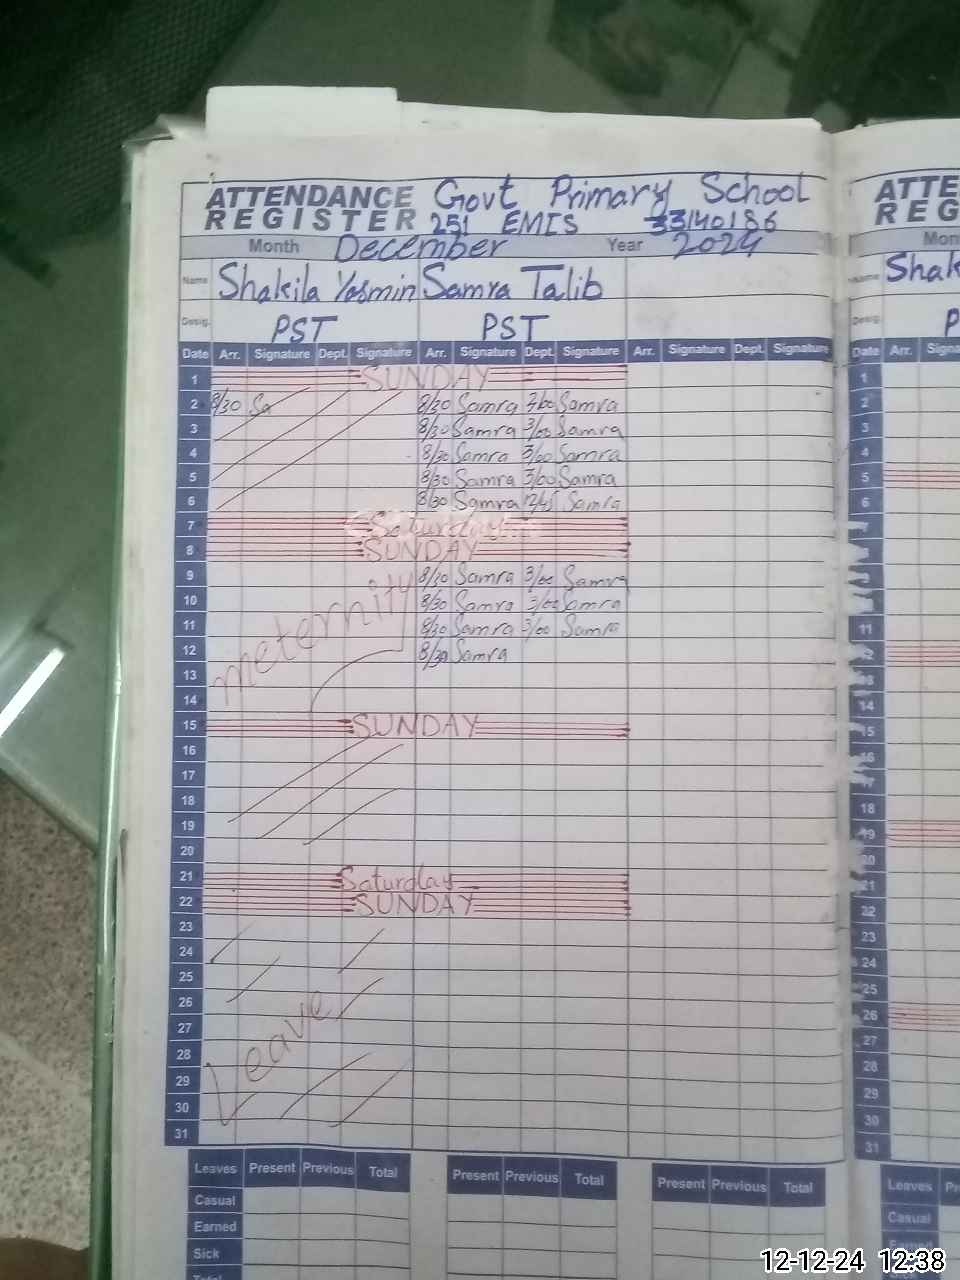 ATTENDANCE Govt Primary School ATTE
REGISTER 251 EMIS 33140186 REG
Month December Year 2024 Mon
Name Shakila Yasmin Samra Talib Name Shak
Desig. PST PST Desig. P
Date Arr. Signature Dept. Signature Arr. Signature Dept. Signature Arr. Signature Dept. Signature Date Arr. Signa
1 SUNDAY 1
2 8/30 Sa 8/30 Samra 2/00 Samra 2
3 8/30 Samra 3/00 Samra 3
4 8/30 Samra 3/00 Samra 4
5 8/30 Samra 3/00 Samra 5
6 8/30 Samra 12/45 Samra 6
7 Saturday 7
8 SUNDAY 8
9 8/30 Samra 3/00 Samra 9
10 8/30 Samra 3/00 Samra 10
11 meternity 8/30 Samra 3/00 Samra 11
12 8/30 Samra 12
13 13
14 14
15 SUNDAY 15
16 16
17 17
18 18
19 19
20 20
21 Saturday 21
22 SUNDAY 22
23 23
24 24
25 25
26 26
27 Leave 27
28 28
29 29
30 30
31 31
Leaves Present Previous Total Present Previous Total Present Previous Total Leaves Pr
Casual Casual
Earned Earned
Sick
Total
12-12-24 12:38